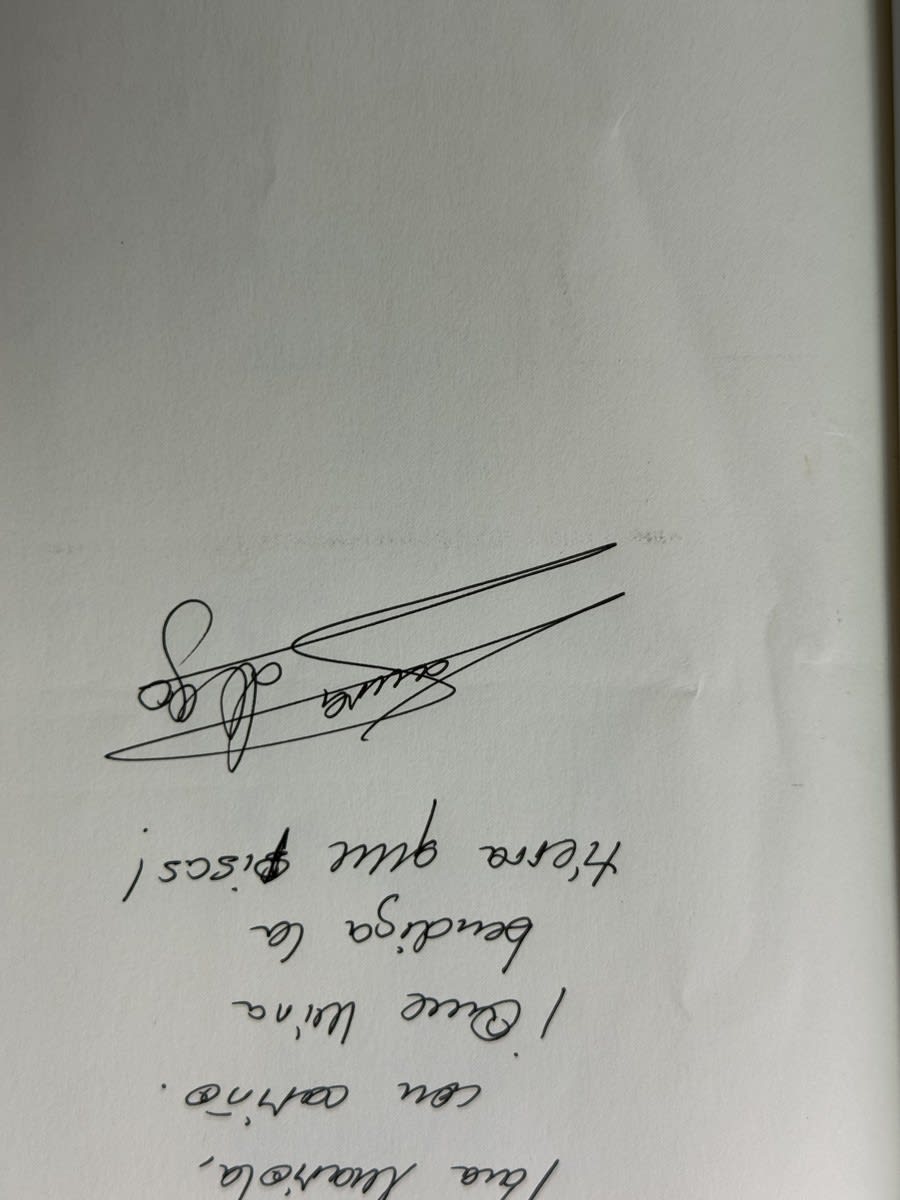 Para Mariola,
con cariño.
¡Que Wina
bendiga la
tierra que pisas!
Laura
Gallego